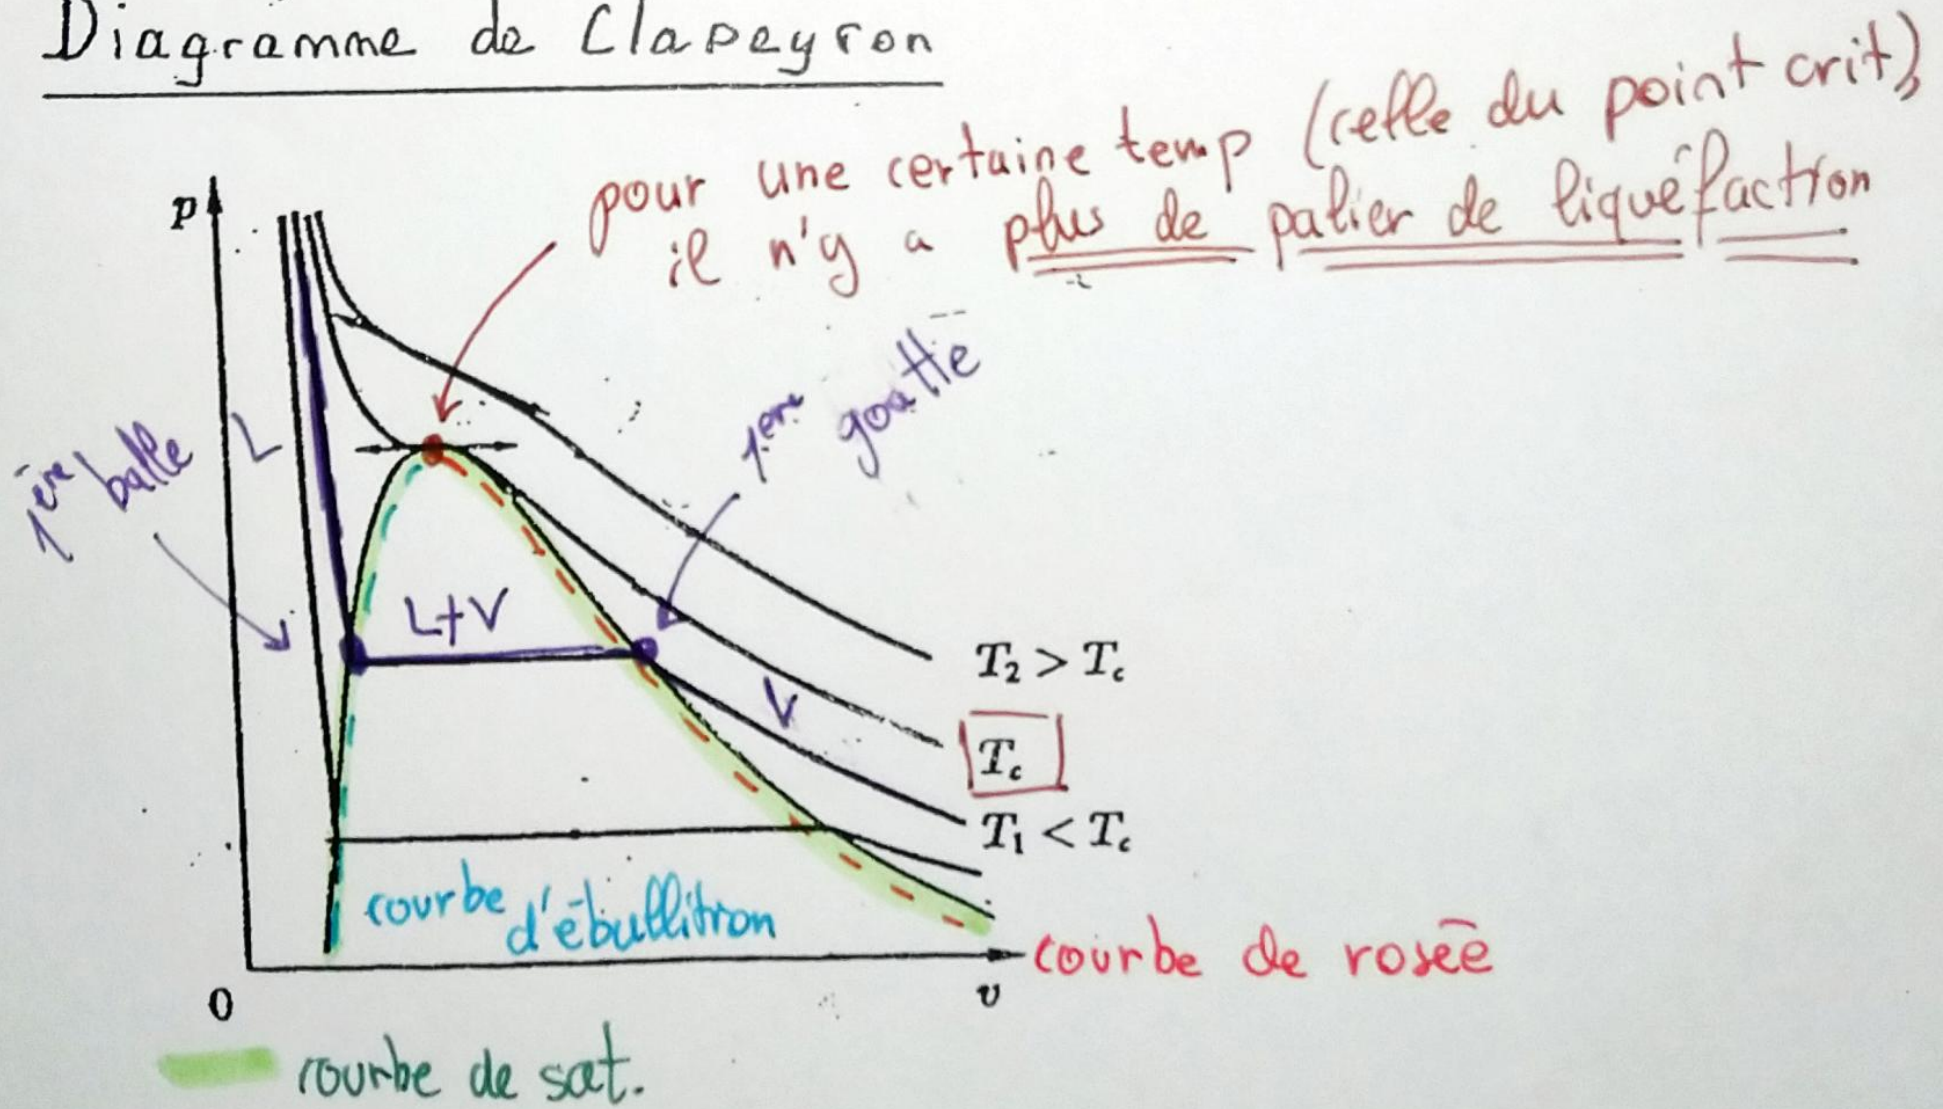 Diagramme de Clapeyron
pour une certaine temp (celle du point crit),
il n'y a plus de palier de liquéfaction
p
L
1ère
balle
1ere
goutte
L+V
V
T₂ > Tc
Tc
T₁ < Tc
courbe
d'ébullition
courbe de rosée
0
v
courbe de sat.